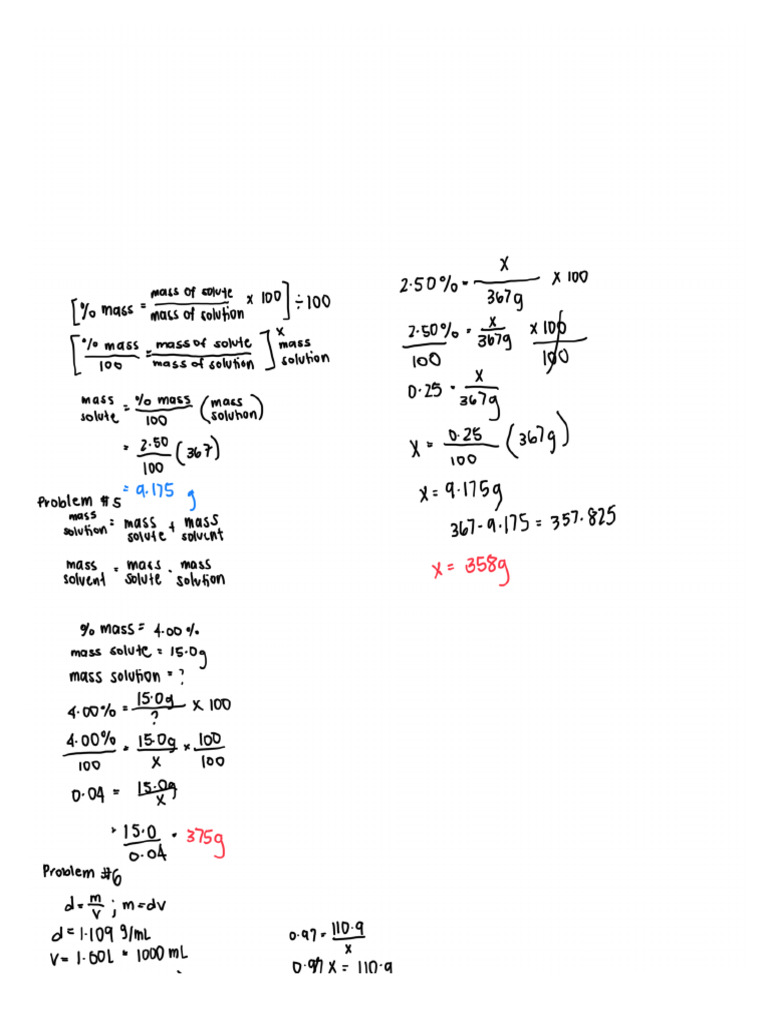 [% mass = mass of solute / mass of solution x 100] ÷ 100
[% mass / 100 = mass of solute / mass of solution] x mass solution
mass solute = % mass / 100 (mass solution)
= 2.50 / 100 (367)
= 9.175 g
Problem #5
mass solution = mass solute + mass solvent
mass solvent = mass solute - mass solution
% mass = 4.00%
mass solute = 15.0g
mass solution = ?
4.00% = 15.0g / ? x 100
4.00% / 100 = 15.0g / x x 100 / 100
0.04 = 15.0g / x
= 15.0 / 0.04 = 375g
Problem #6
d = m / v ; m = dv
d = 1.109 g/mL
v = 1.00L = 1000 mL
2.50% = x / 367g x 100
2.50% / 100 = x / 367g x 100 / 100
0.25 = x / 367g
x = 0.25 / 100 (367g)
x = 9.175g
367 - 9.175 = 357.825
x = 358g
0.97 = 110.9 / x
0.97 x = 110.9